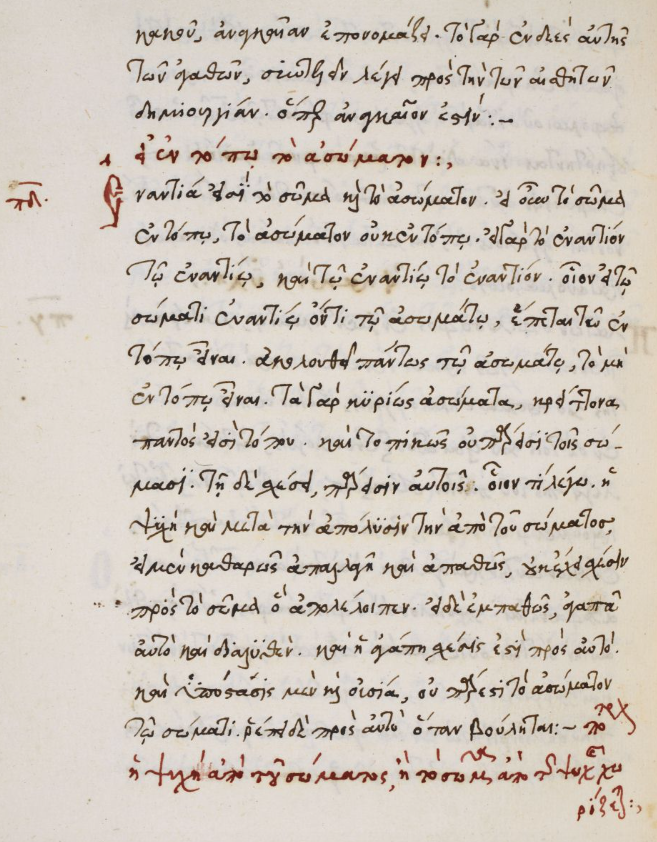 κακοῦ, ἀνάγκην ἀν ἐπονομάζει. Τὸ γὰρ ἐνδεὲς αὐτῆς
τῶν ἀγαθῶν, συντείνειν λέγει πρὸς τὴν τῶν αἰσθητῶν
δημιουργίαν. ὅπερ ἀναγκαῖον ἐστίν:~
εἰ ἐν τόπῳ τὸ ἀσώματον:,
πδ.
Ἐναντία εἰσὶ τὸ σῶμα καὶ τὸ ἀσώματον. εἰ οὖν τὸ σῶμα
ἐν τόπῳ, τὸ ἀσώματον οὐκ ἐν τόπῳ. εἰ γὰρ τὸ ἐναντίον
τῷ ἐναντίῳ, καὶ τῷ ἐναντίῳ τὸ ἐναντίον. οἷον εἰ τῷ
σώματι ἐναντίῳ ὄντι τῷ ἀσωμάτῳ, ἕπεται τῶ ἐν
τόπῳ εἶναι. ἀκολουθεῖ πάντως τῷ ἀσωμάτῳ, τὸ μὴ
ἐν τόπῳ εἶναι. Τὰ γὰρ κυρίως ἀσώματα, κρείττονα
παντός εἰσι τόπου. καὶ τοπικῶς οὐ πάρεισι τοῖς σώ-
μασι. Τῇ δὲ σχέσει, πάρεισιν αὐτοῖς. οἷόν τι λέγω. ἡ
ψυχὴ καὶ μετὰ τὴν ἀπόλυσιν τὴν ἀπὸ τοῦ σώματος,
εἰ μὲν καθαρῶς ἀπαλλαγῇ καὶ ἀπαθῶς, οὐκ ἔχει σχέσιν
πρὸς τὸ σῶμα ὃ ἀπολέλοιπεν. εἰ δὲ ἐμπαθῶς, ἀγαπᾷ
αὐτὸ καὶ διαλυθέν. καὶ ἡ ἀγάπη σχέσις ἐστὶ πρὸς αὐτό.
καὶ ὑπόστασις μὲν καὶ οὐσία, οὐ πάρεστι τὸ ἀσώματον
τῷ σώματι. ῥέπει δὲ πρὸς αὐτὸ ὅταν βούληται:~
ἡ ψυχὴ ἀπὸ τοῦ σώματος, ἢ τὸ σῶμα ἀπὸ τῆς ψυχῆς χω
ρίζεται:,